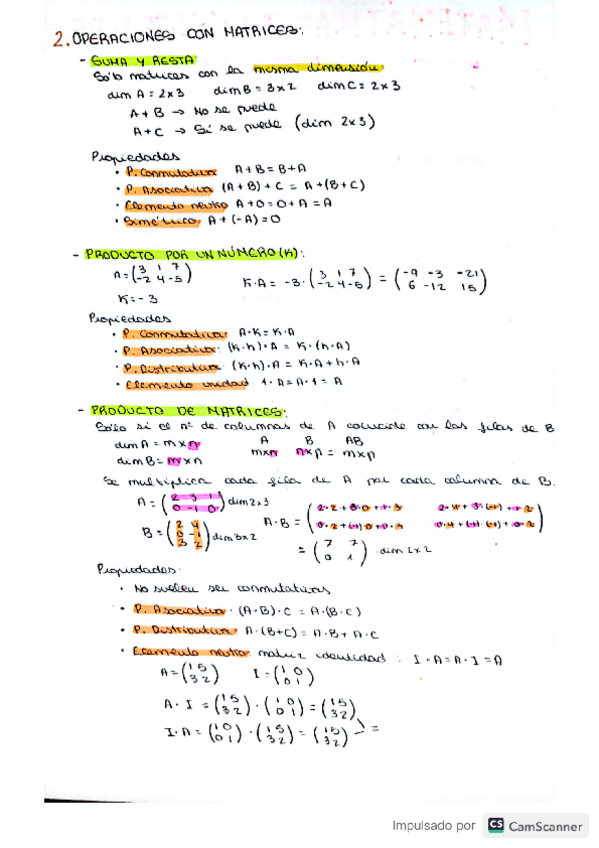 2. OPERACIONES CON MATRICES:
- SUMA Y RESTA
Sólo matrices con la misma dimensión
dim A = 2x3 dim B = 3x2 dim C = 2x3
A + B → No se puede
A + C → Sí se puede (dim 2x3)
Propiedades
• P. Conmutativa A + B = B + A
• P. Asociativa (A + B) + C = A + (B + C)
• Elemento neutro A + 0 = 0 + A = A
• Simétrica: A + (-A) = 0
- PRODUCTO POR UN NÚMERO (K):
A = (3 1 7 / -2 4 -5) K·A = -3·(3 1 7 / -2 4 -5) = (-9 -3 -21 / 6 -12 15)
K = -3
Propiedades
• P. Conmutativa: A·K = K·A
• P. Asociativa: (K·h)·A = K·(h·A)
• P. Distributiva: (K·h)·A = K·A + h·A
• Elemento unidad 1·A = A·1 = A
- PRODUCTO DE MATRICES:
Sólo si el nº de columnas de A coincide con las filas de B
dim A = m x n A B AB
dim B = m x n mxn nxp = mxp
Se multiplica cada fila de A por cada columna de B.
A = (2 3 1 / 0 -1 0) dim 2x3
B = (2 4 / 0 -1 / 3 2) dim 3x2 A·B = (2·2 + 3·0 + 1·3 2·4 + 3·(-1) + 1·2 / 0·2 + (-1)·0 + 0·3 0·4 + (-1)·(-1) + 0·2)
= (7 7 / 0 1) dim 2x2
Propiedades:
• No suelen ser conmutativas
• P. Asociativa · (A·B)·C = A·(B·C)
• P. Distributiva: A·(B+C) = A·B + A·C
• Elemento neutro: matriz identidad : I·A = A·I = A
A = (1 5 / 3 2) I = (1 0 / 0 1)
A·I = (1 5 / 3 2)·(1 0 / 0 1) = (1 5 / 3 2)
I·A = (1 0 / 0 1)·(1 5 / 3 2) = (1 5 / 3 2) =
Impulsado por CS CamScanner